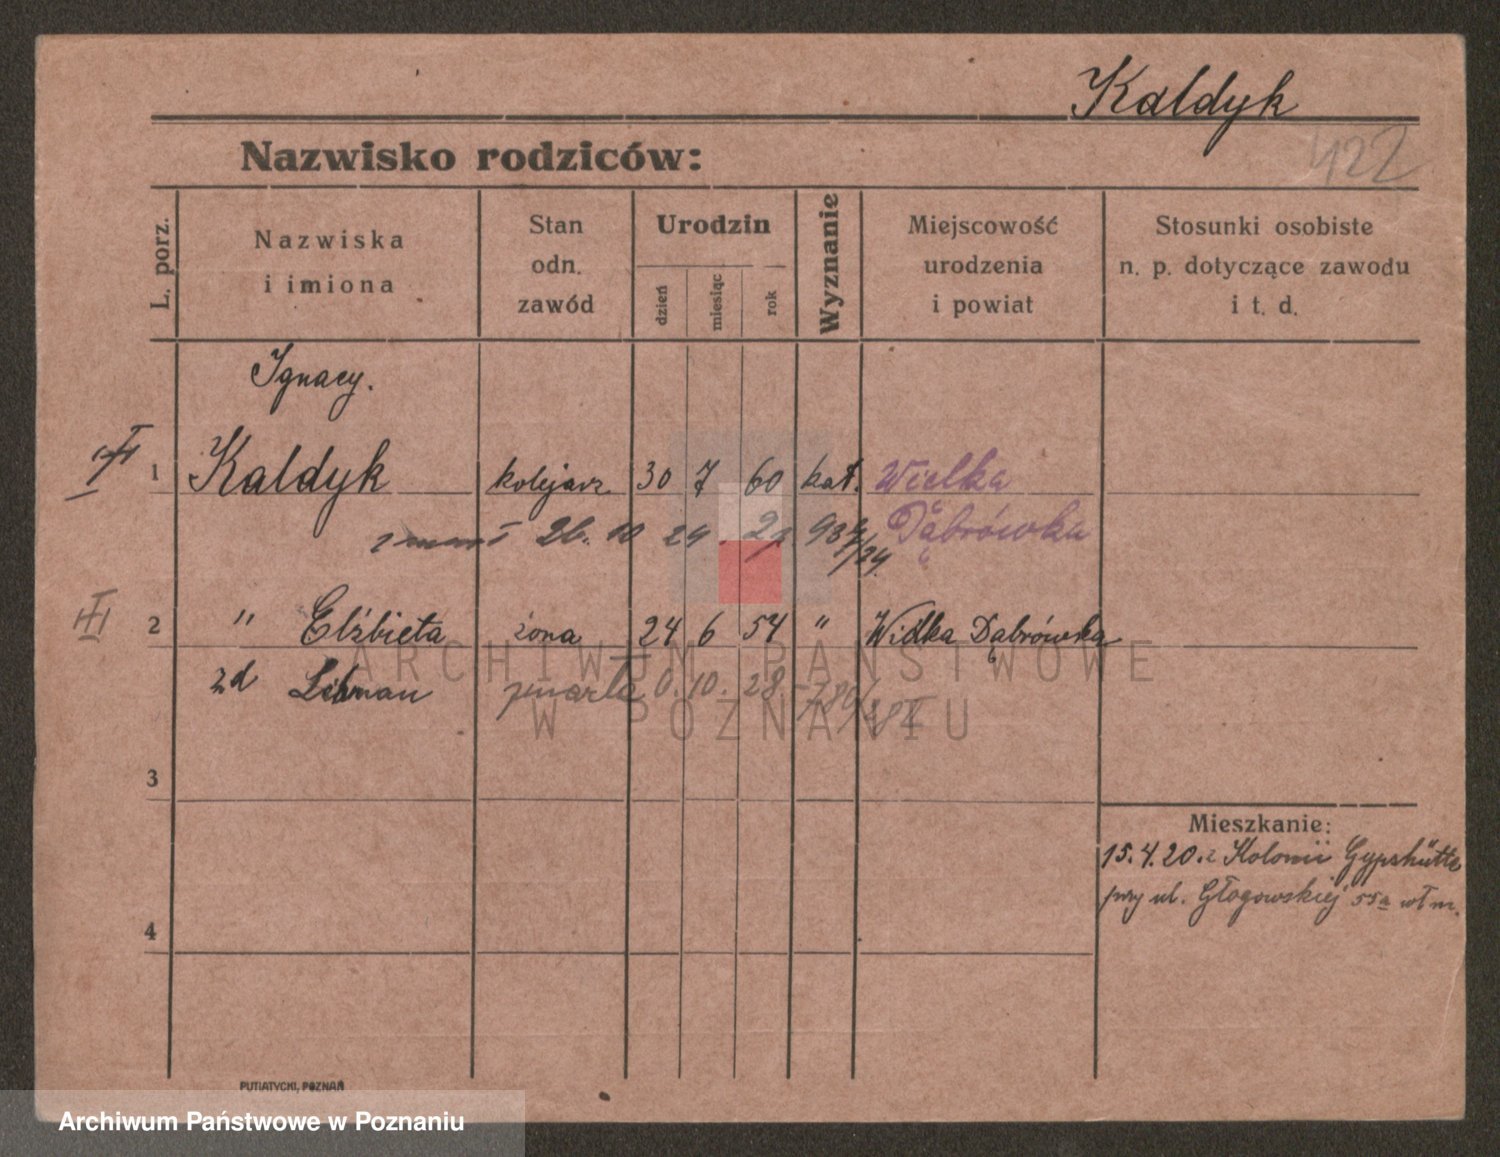 Kaldyk
422
Nazwisko rodziców:
L. porz.
Nazwiska
i imiona
Stan
odn.
zawód
Urodzin
dzień
miesiąc
rok
Wyznanie
Miejscowość
urodzenia
i powiat
Stosunki osobiste
n. p. dotyczące zawodu
i t. d.
Ignacy.
1 Kaldyk kolejarz 30 7 60 kat. Wielka
26. 10 24. Dąbrówka
2 " Elżbieta żona 24 6 54 " Wielka Dąbrówka
zd Libman zmarła 10. 28
ARCHIWUM PAŃSTWOWE
W POZNANIU
3
Mieszkanie:
15.4.20. z Kolonii Gypshütte
przy ul. Głogowskiej 55a wł m.
4
PUTIATYCKI, POZNAŃ
Archiwum Państwowe w Poznaniu